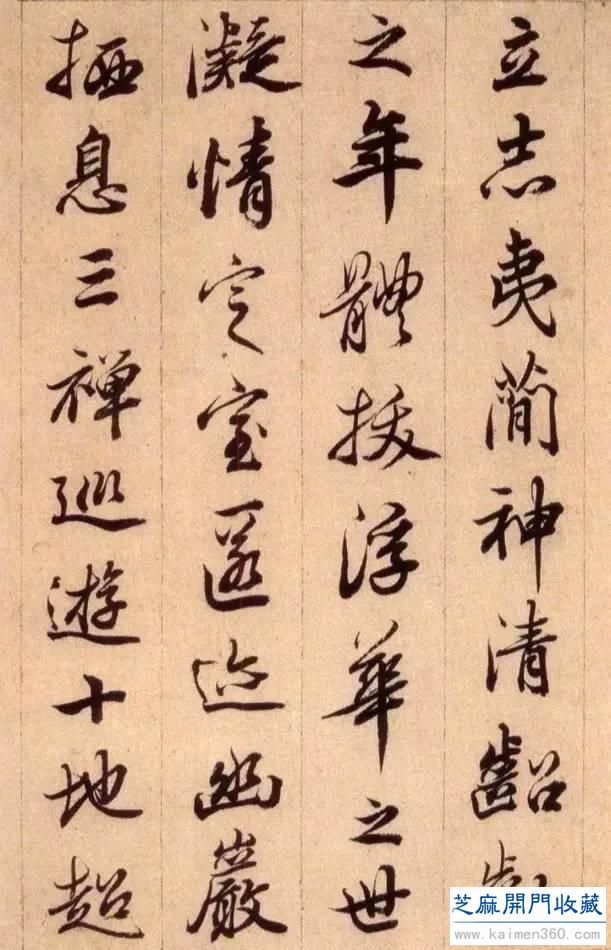 立志夷簡神清齠
之年體拔浮華之世
凝情定室匿迹幽巖
栖息三禪巡遊十地超
芝麻開門收藏
www.kaimen360.com